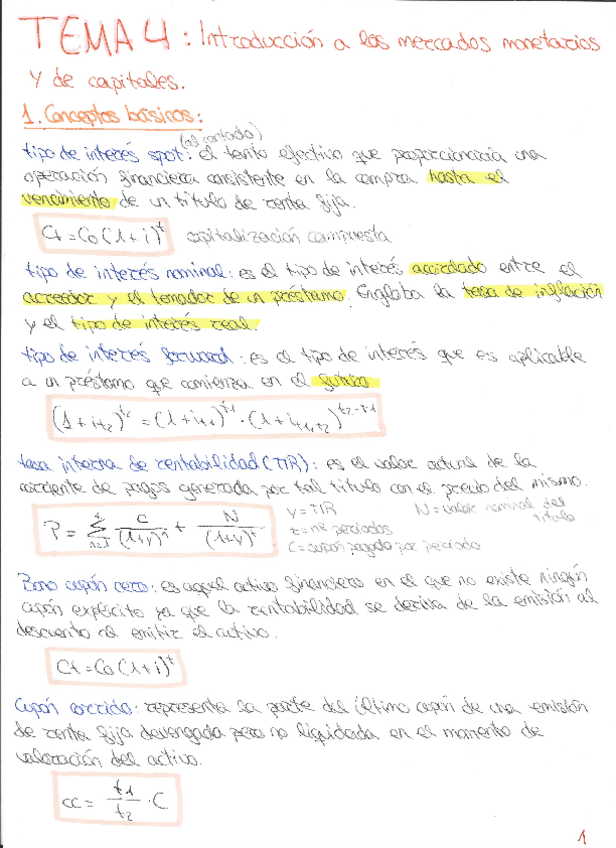 TEMA 4: Introducción a los mercados monetarios
y de capitales.
1. Conceptos básicos:
(al contado)
tipo de interés spot: el tanto efectivo que proporcionaría una
operación financiera consistente en la compra hasta el
vencimiento de un título de renta fija.
Ct = Co (1+i)^t capitalización compuesta
tipo de interés nominal: es el tipo de interés acordado entre el
acreedor y el tomador de un préstamo. Engloba la tasa de inflación
y el tipo de interés real.
tipo de interés forward: es el tipo de interés que es aplicable
a un préstamo que comienza en el futuro.
(1+i_t2)^t2 = (1+i_t1)^t1 · (1+i_t1,t2)^t2-t1
tasa interna de rentabilidad (TIR): es el valor actual de la
corriente de pagos generada por tal título con el precio del mismo.
P = Σ C/(1+y)^n + N/(1+y)^t
y = TIR N = valor nominal del título
t = nº periodos
C = cupón pagado por periodo
Bono cupón cero: es aquel activo financiero en el que no existe ningún
cupón explícito ya que la rentabilidad se deriva de la emisión al
descuento al emitir el activo.
Ct = Co (1+i)^t
Cupón corrido: representa la parte del último cupón de una emisión
de renta fija devengada pero no liquidada en el momento de
valoración del activo.
cc = t1/t2 · C
1